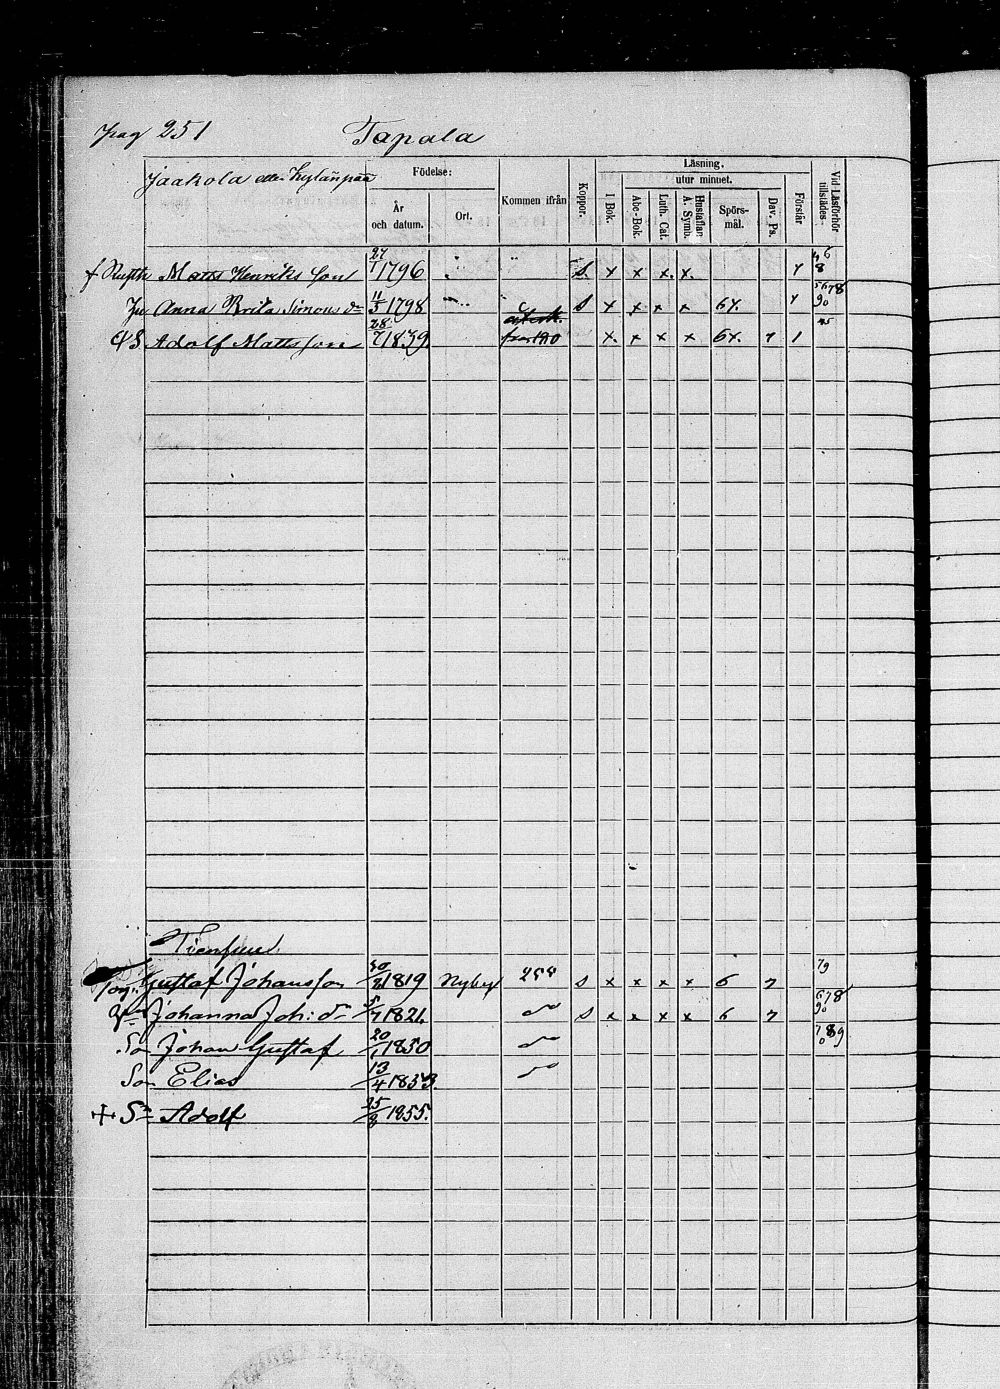 pag 251 Tapala
Jaakola eller Kylänpää
Födelse:
År och datum.
Ort.
Kommen ifrån
Koppor.
Läsning,
I Bok.
utur minnet.
Abc-Bok.
Luth. Cat.
Hustaflan A. Symb.
Spörsmål.
Dav. Ps.
Förstår
Vid Läsförhör tillstädes
Matts Henriksson 27/1 1796 s x x x x
Anna Brita Simons dr 11/3 1798 s x x x x 6x.
Adolf Mattsson 28/7 1839. x x x x 6x. 7 1
Gustaf Johansson 1819 Nyby s x x x x 6 7
Johanna Joh: dr 1821. s x x x x 6 7
So Johan Gustaf 20/1 1850
So Elias 13/4 1853
Sn Adolf 25/8 1855.